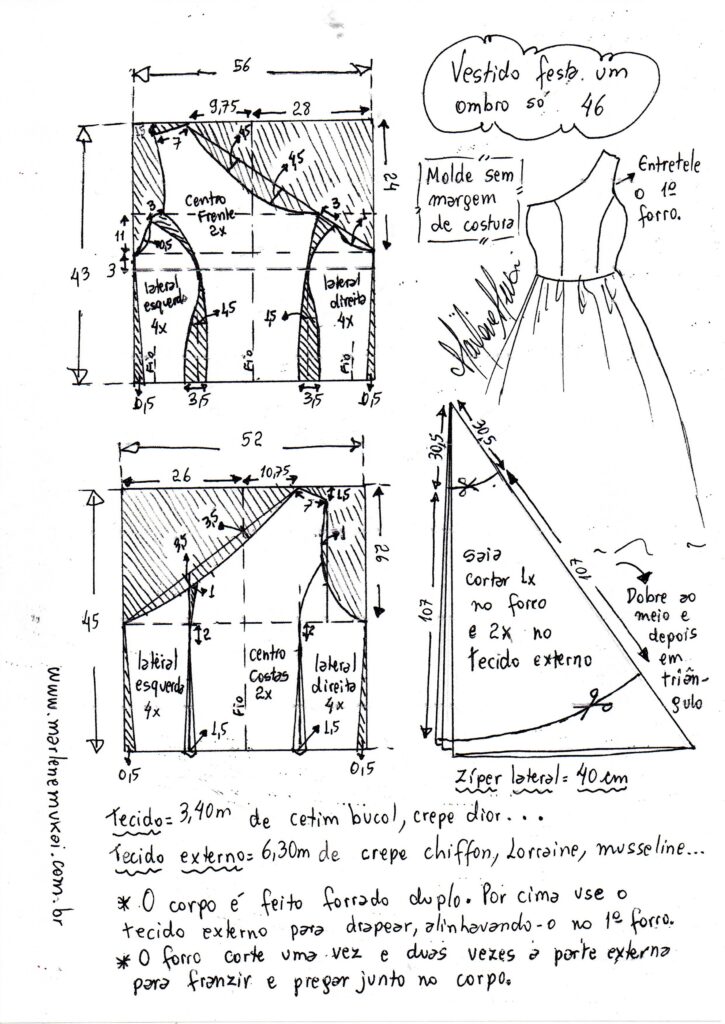 Vestido festa um
ombro só 46
Molde sem
margem
de costura
Entretele
o 1º
forro.
56
9,75
28
1,5
7
4,5
4,5
24
43
11
3
3
3
0,5
Centro
Frente
2x
lateral
esquerda
4x
lateral
direita
4x
1,5
1,5
Fio
Fio
Fio
0,5
3,5
3,5
0,5
52
26
10,75
1,5
7
3,5
1
1
26
45
2
2
lateral
esquerda
4x
Centro
Costas
2x
lateral
direita
4x
Fio
1,5
1,5
0,5
0,5
30,5
30,5
107
107
saia
cortar 1x
no forro
e 2x no
tecido externo
Dobre ao
meio e
depois
em
triân-
gulo
Zíper lateral = 40 cm
www.marlenemukai.com.br
Tecido = 3,40m de cetim bucol, crepe dior...
Tecido externo = 6,30m de crepe chiffon, Lorraine, musseline...
* O corpo é feito forrado duplo. Por cima use o
tecido externo para drapear, alinhavando-o no 1º forro.
* O forro corte uma vez e duas vezes a parte externa
para franzir e pregar junto no corpo.